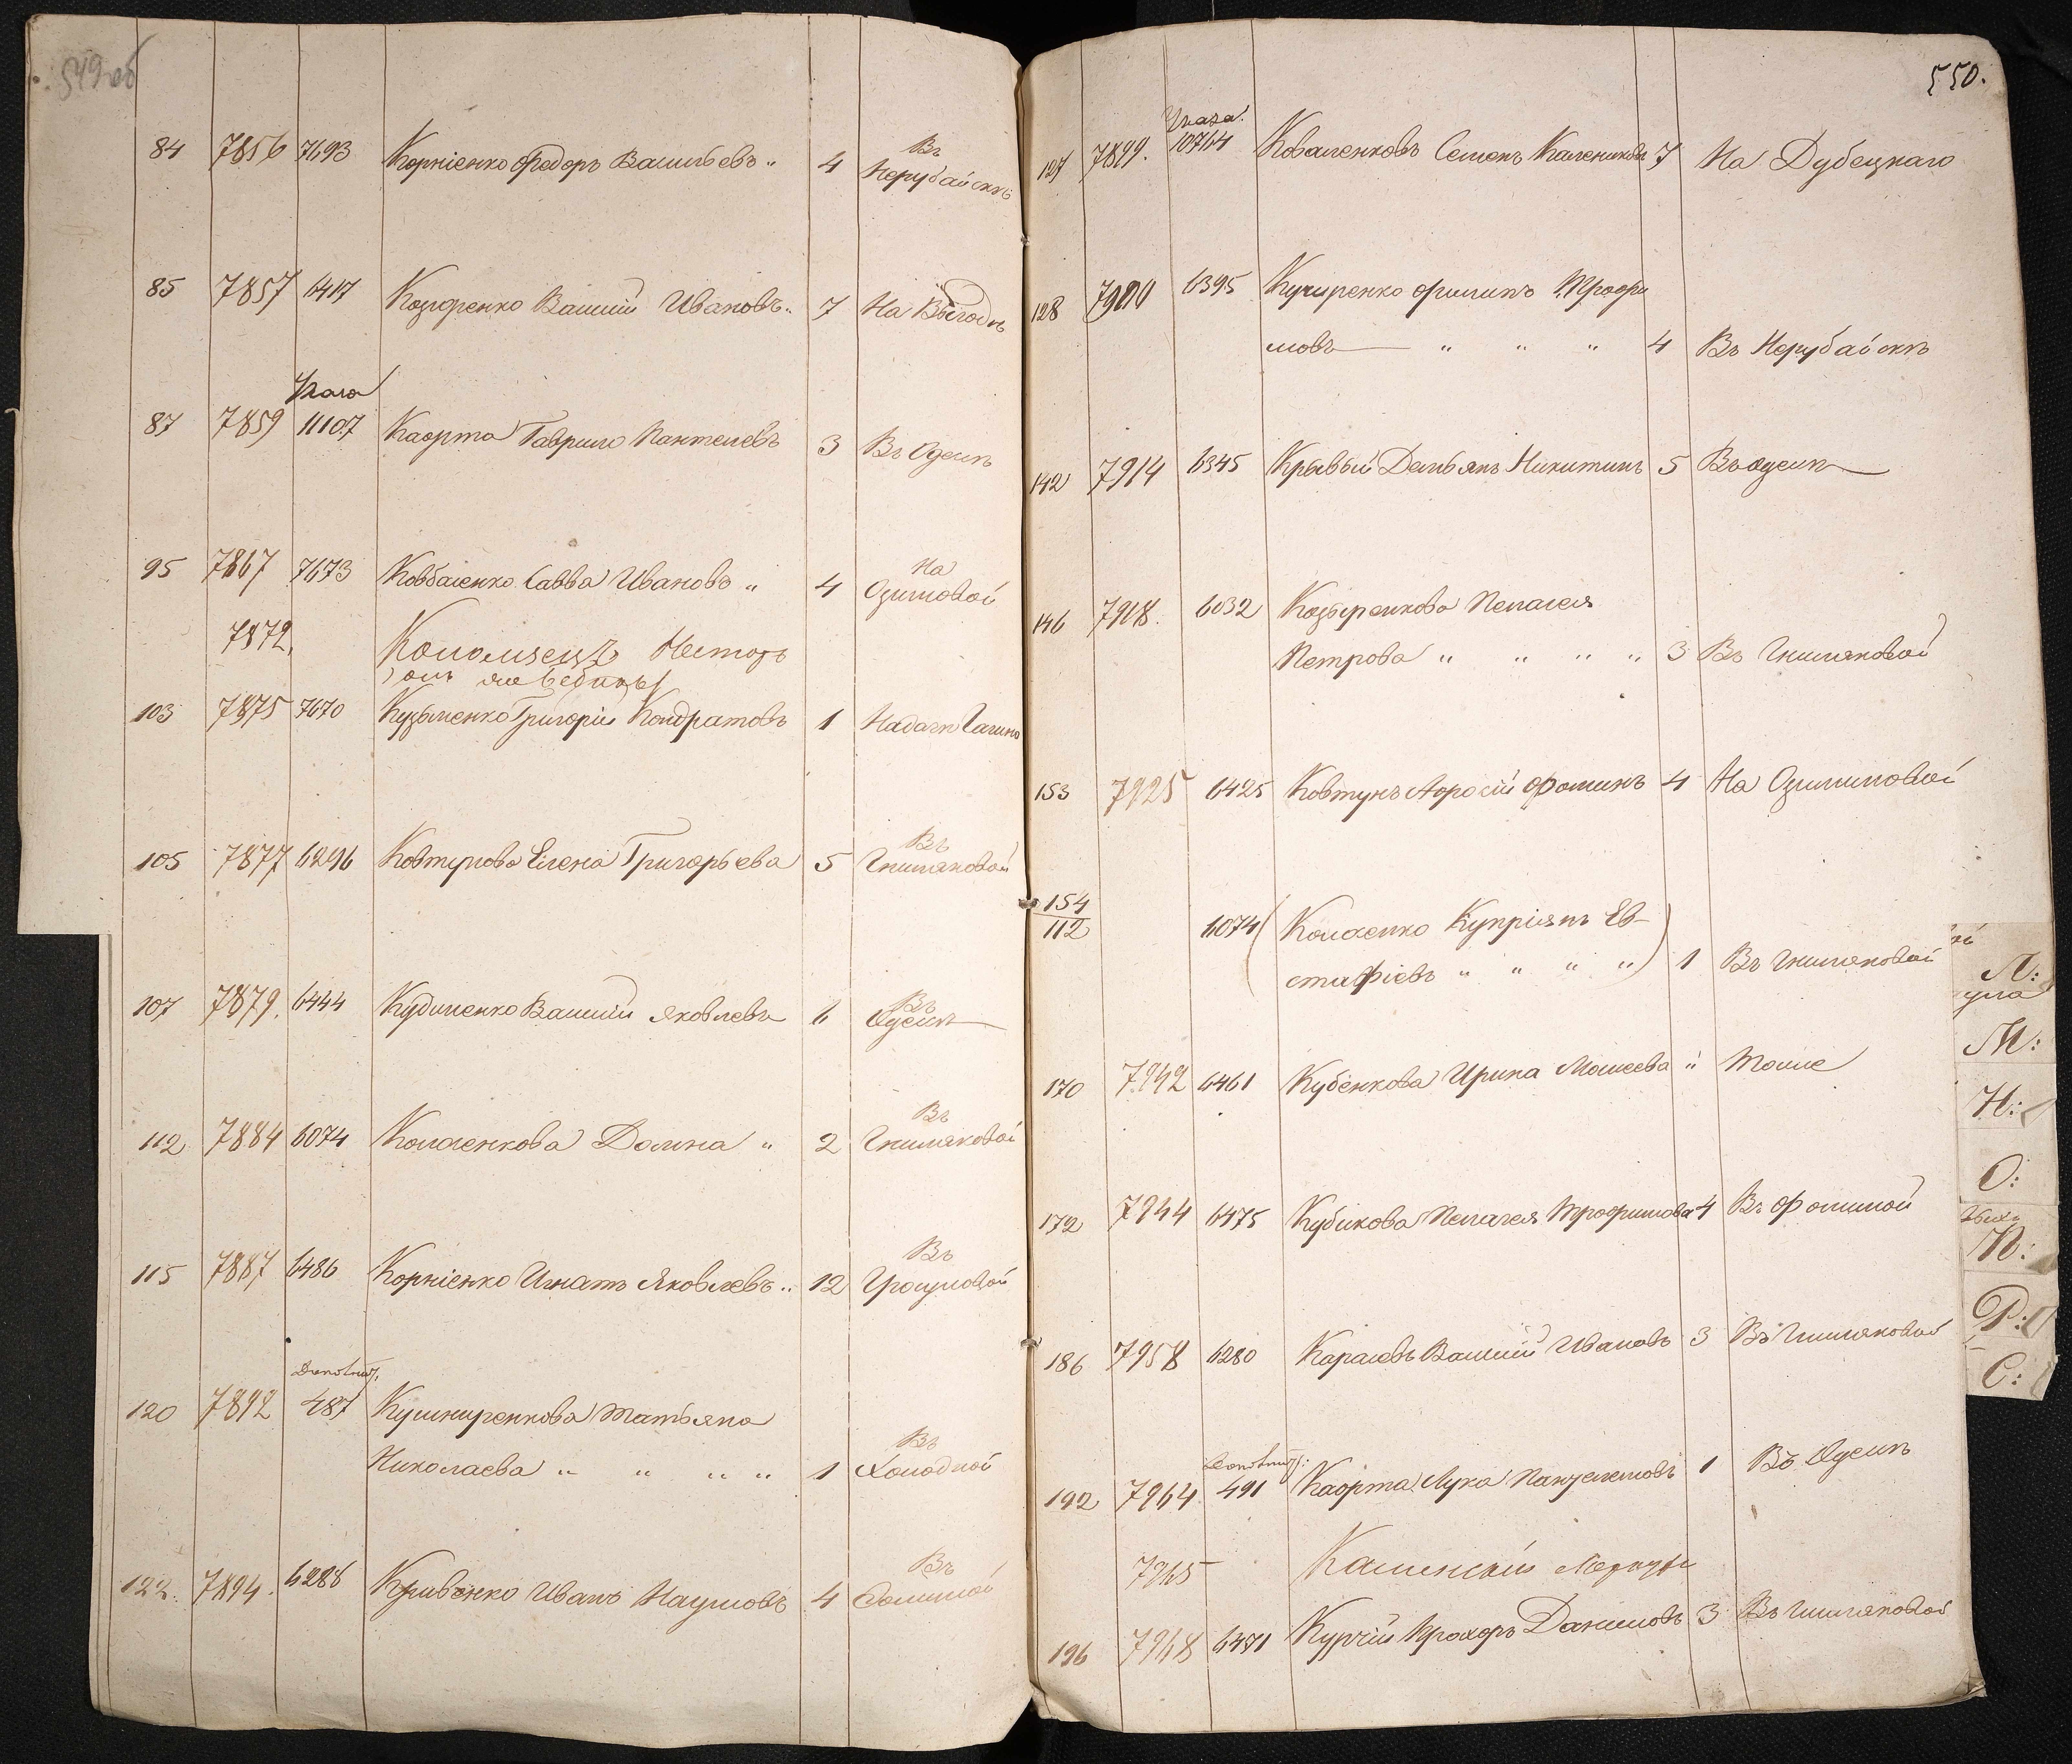 549 об
84 7856 7693 Корніенко Федоръ Васильевъ „ 4 Въ
Нерубайскъ
85 7857 6417 Козыренко Василій Ивановъ „ 7 На Выгодъ
Указа
87 7859 11107 Каорта Гаврило Пантелевъ 3 Въ Одесъ
95 7867 7673 Ковбасенко Савва Ивановъ „ 4 На
Озимовой
7872 Коломіецъ Несторъ
103 7875 7670 Кузьменко Григорій Кондратовъ 1 На дачъ
105 7877 6296 Ковтунова Елена Григорьева 5 Въ
Гниляковой
107 7879. 6444 Кудименко Василій Яковлевъ 6 Въ
Одесъ
112 7884 6074 Коласенкова Домна „ 2 Въ
Гниляковой
115 7887 6486 Корніенко Игнатъ Яковлевъ „ 12 Въ
Гросуловой
120 7892 487 Кушниренкова Татьяна
Николаева „ „ „ „ 1 Въ
Холодной
122. 7894. 6288 Кривенко Иванъ Наумовъ 4 Въ
Фоминой
550.
Указа
127 7899. 10764 Коваленковъ Семенъ Калениковъ 7 На Дубецкаго
128 7900 6395 Кучиренко Филипъ Трофи
мовъ „ „ „ 4 Въ Нерубайскъ
142 7914 6345 Крывый Демьянъ Никитинъ 5 Въ Одесъ
146 7918. 6032 Козыренкова Пелагея
Петрова „ „ „ „ 3 Въ Гниляковой
153 7925 6425 Ковтунъ Фоминъ 4 На Озимиловой
154
112 6074 (Коласенко Купріянъ Ев-
стафіевъ „ „ „ „) 1 Въ Гниляковой
170 7942 6461 Кубенкова Ирина Моисеева „ Тоже
172 7944 6475 Кубикова Пелагея Трофимова 4 Въ Фоминой
186 7958 6280 Каралевъ Василій Ивановъ 3 Въ Гниляковой
192 7964 491 Каорта Лука Пантелемовъ 1 Въ Одесъ
7965 Калинскій
196 7968 6471 Курчій Прохоръ Даниловъ 3 Въ Гниляковой
Л:
М:
Н:
О:
П:
Р:
С: